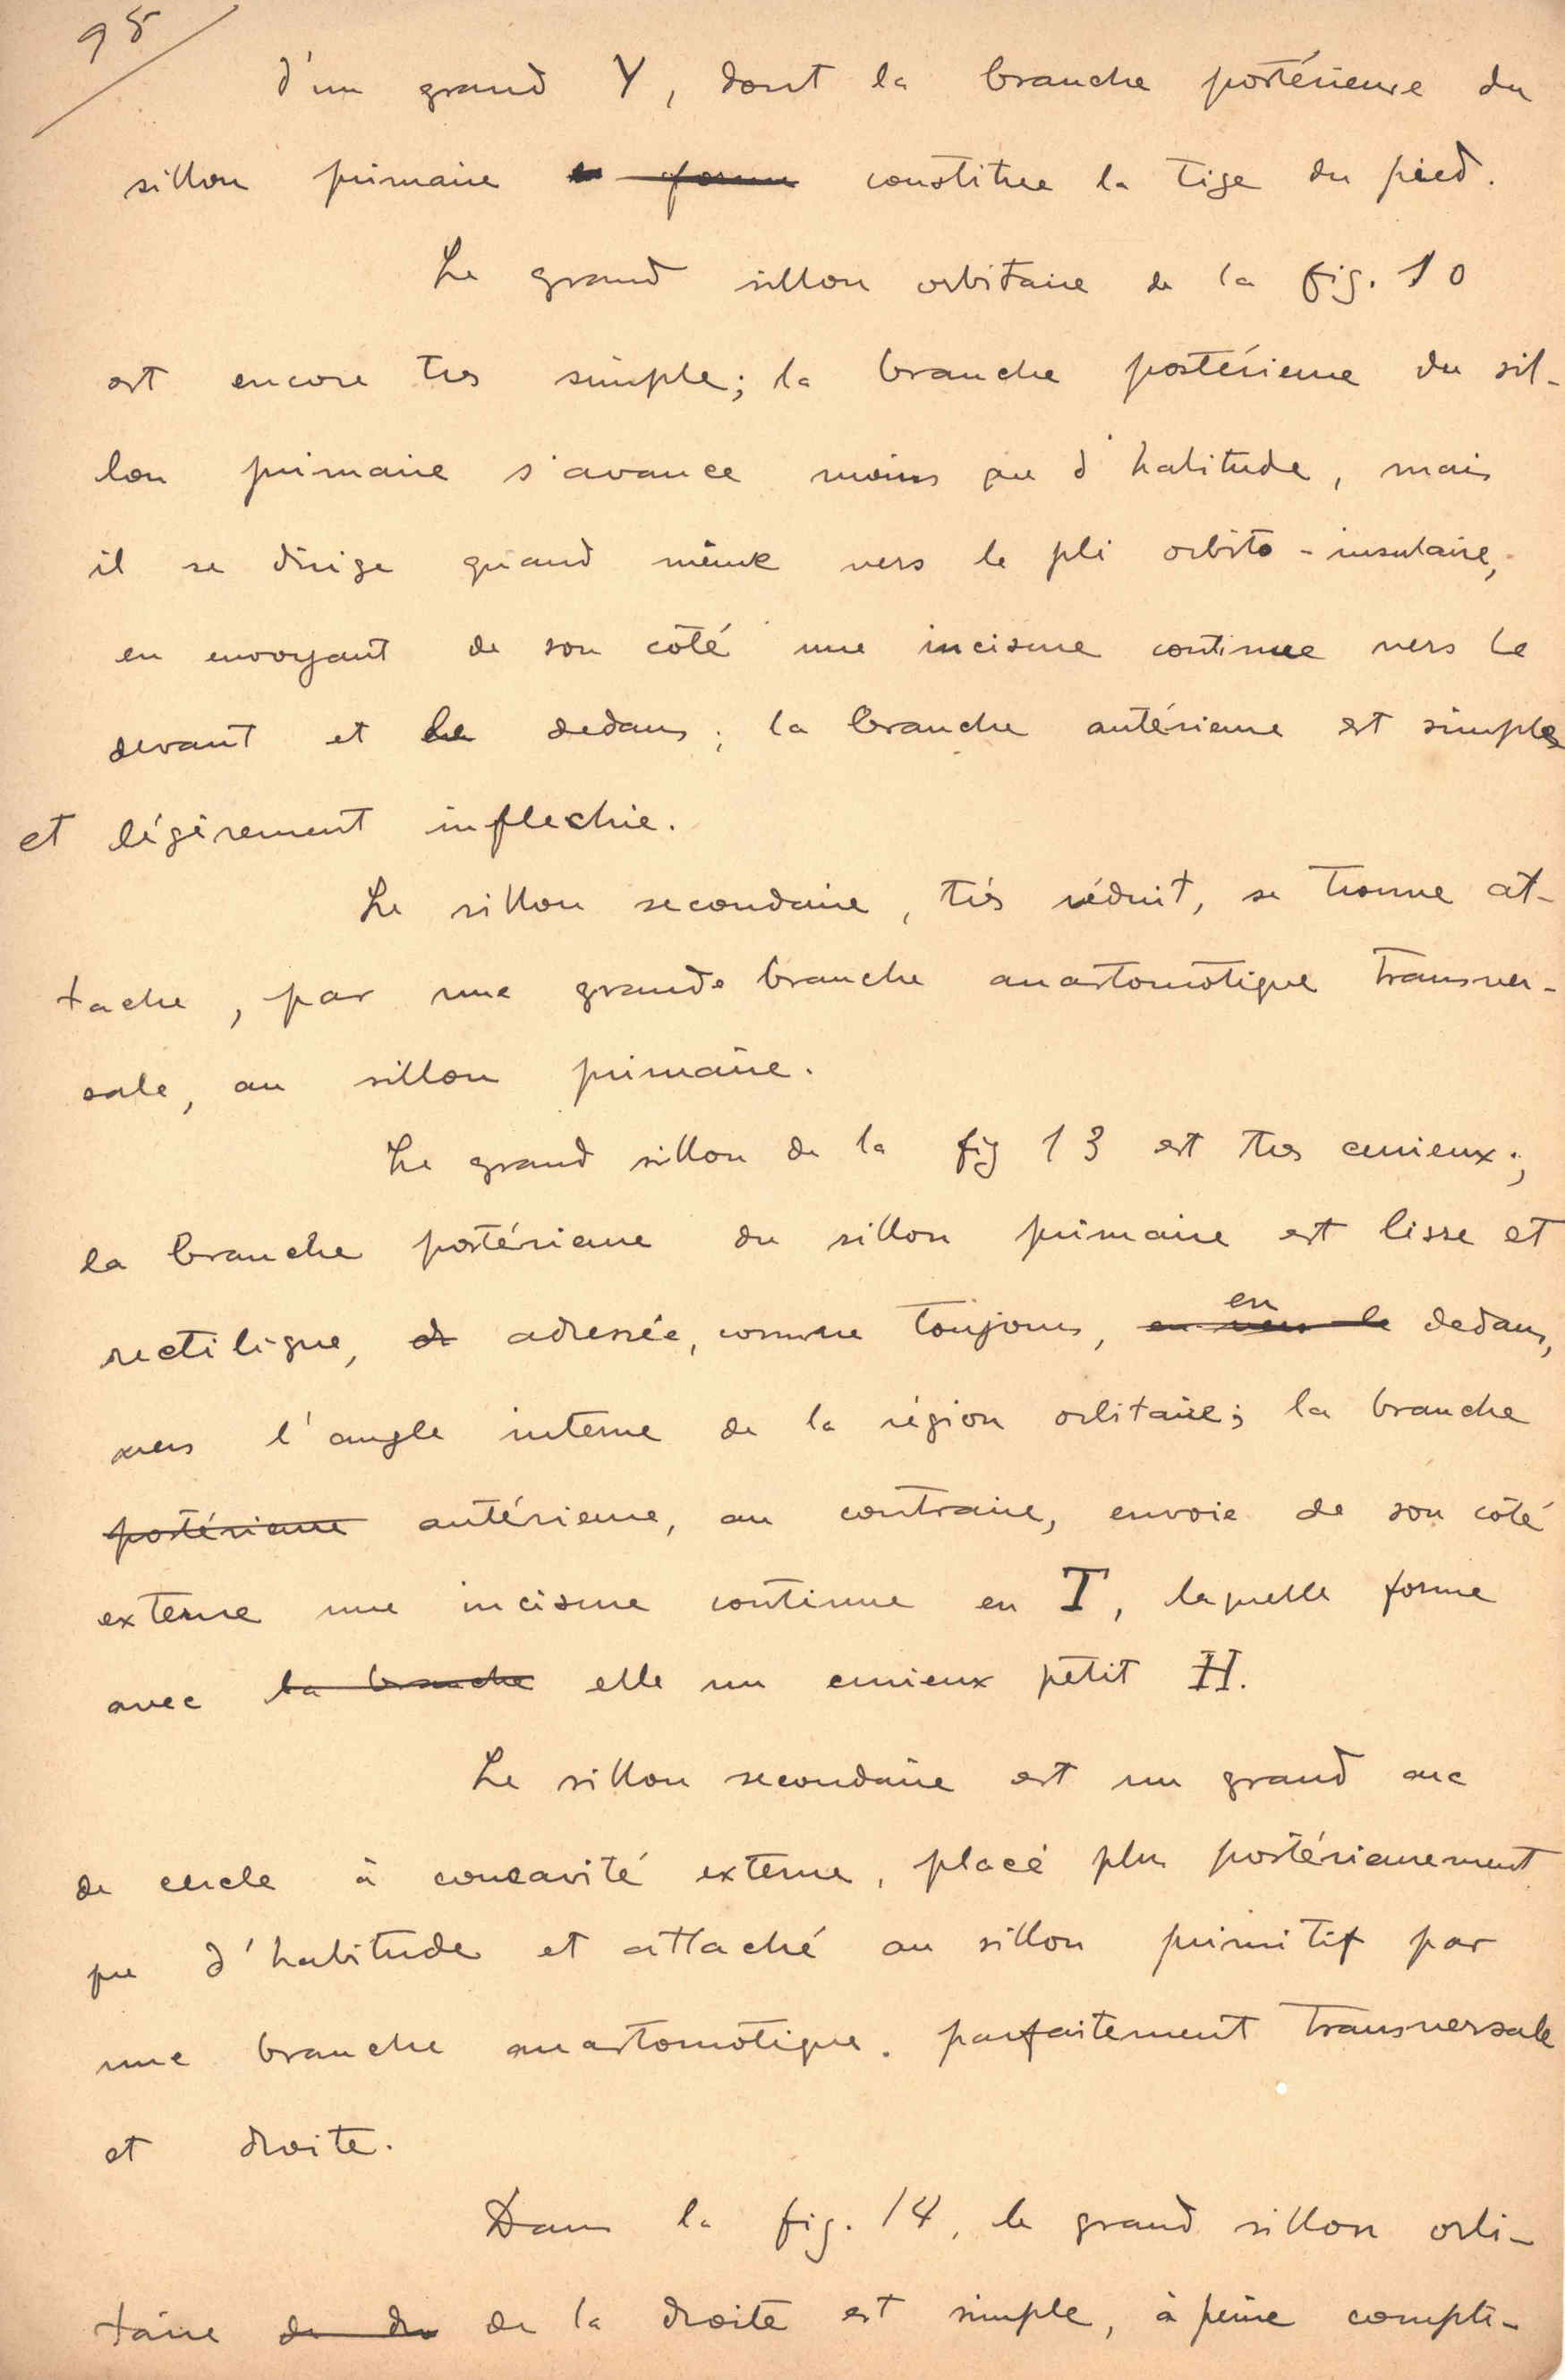 95
d'un grand Y, dont la branche postérieure du
sillon primaire forme constitue la tige du pied.
Le grand sillon orbitaire de la fig. 10
est encore tres simple; la branche postérieure du sil-
lon primaire s'avance moins que d'habitude, mais
il se dirige quand même vers le pli orbito-insulaire,
en envoyant de son côté une incisure continue vers le
devant et le dedans; la branche antérieure est simple
et légèrement inflechie.
Le sillon secondaire, très réduit, se trouve at-
tache, par une grande branche anastomotique transver-
sale, au sillon primaire.
Le grand sillon de la fig 13 est tres curieux;
la branche postérieure du sillon primaire est lisse et
rectiligne, adressée, comme toujours, en vers le en dedans,
vers l'angle interne de la région orbitaire; la branche
postérieure antérieure, au contraire, envoie de son côté
externe une incisure continue en T, laquelle forme
avec la branche elle un curieux petit H.
Le sillon secondaire est un grand arc
de cercle à concavité externe, placé plus postérieurement
que d'habitude et attaché au sillon primitif par
une branche anastomotique. parfaitement transversale
et droite.
Dans la fig. 14, le grand sillon orbi-
taire de dro de la droite est simple, à peine compli-